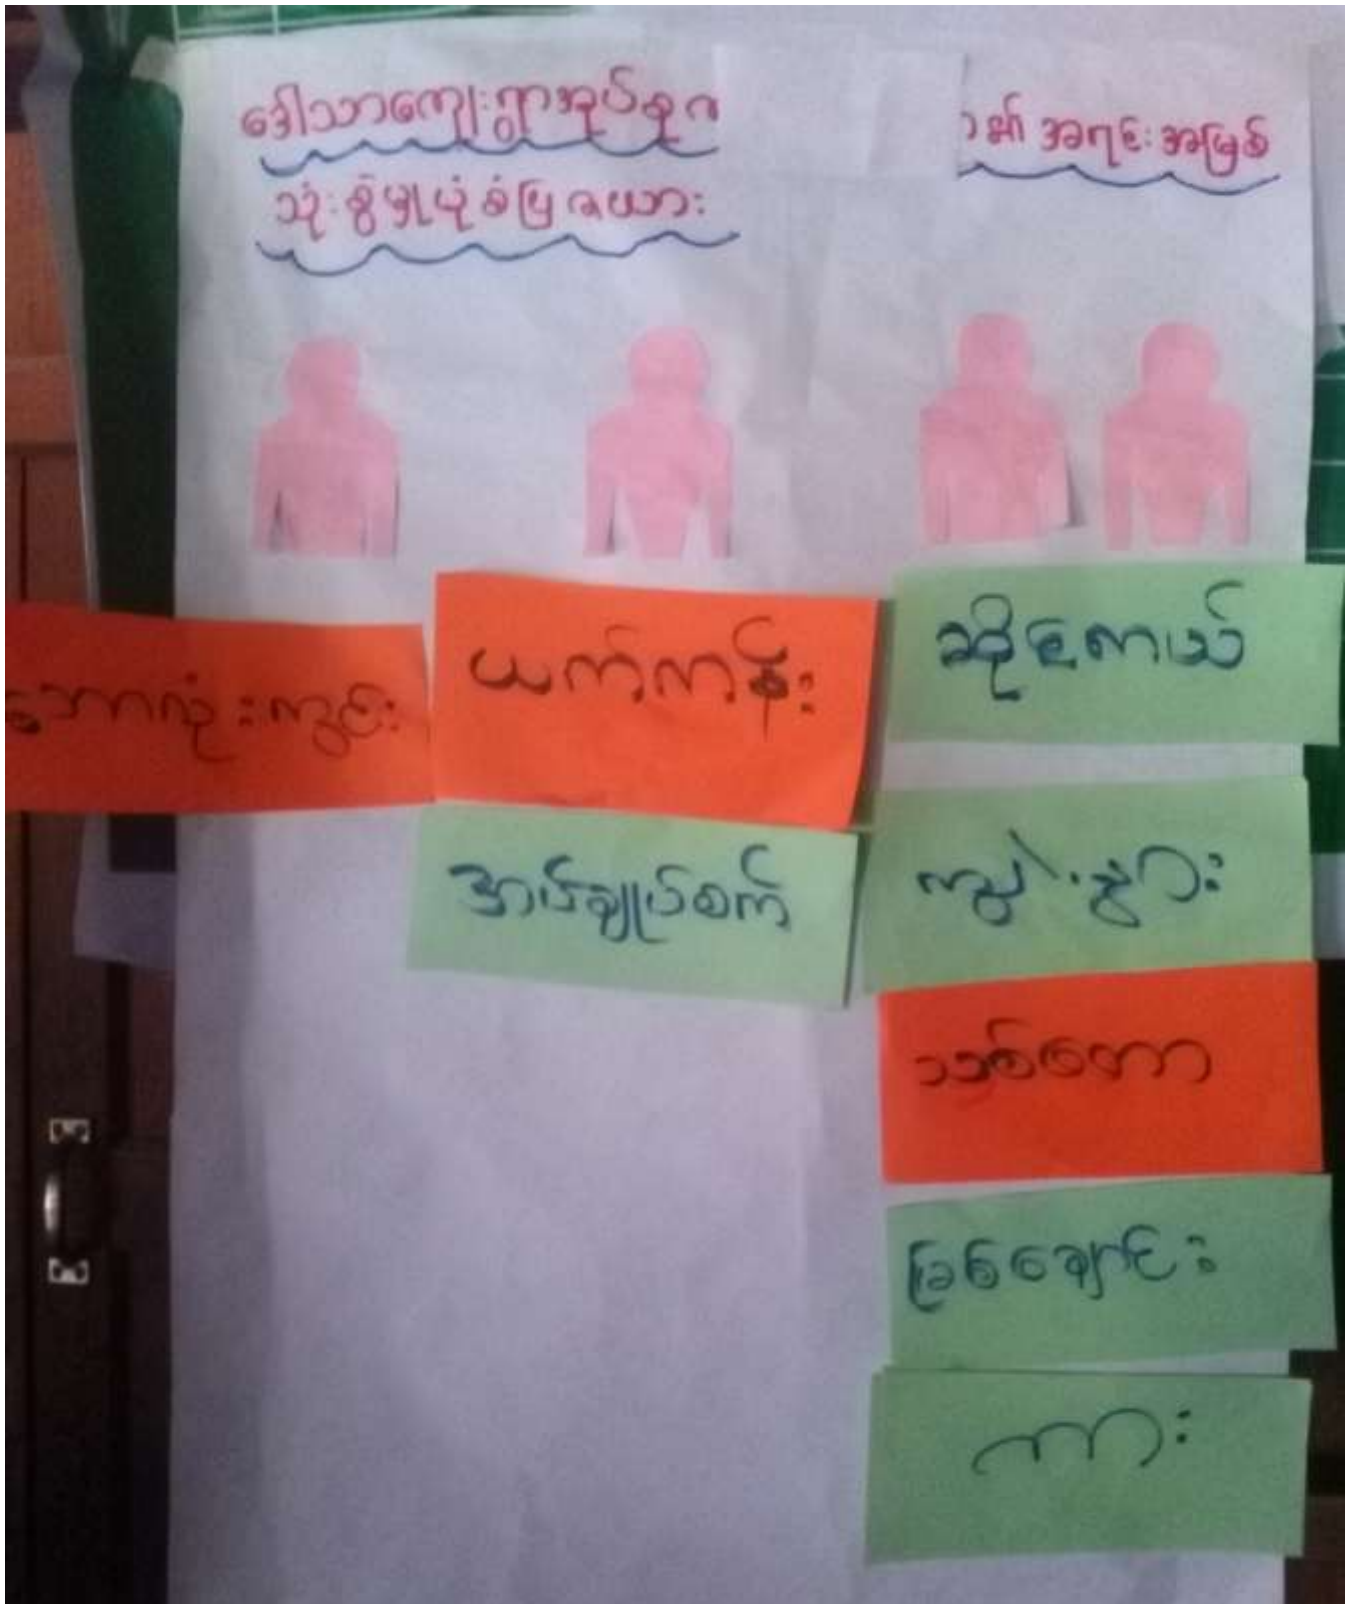 ဒေါသာကျေးရွာအုပ်စုဂ
၁၏ အရင်းအမြစ်
သုံးစွဲမှုပုံစံပြဇယား
ဘောလုံးကွင်း
ယက်ကန်း
ဆိုင်ကယ်
အပ်ချုပ်စက်
ကျွဲ၊နွား
သစ်တော
မြစ်ချောင်း
ကား